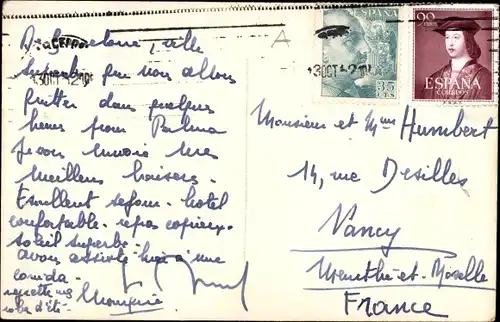 De Barcelone, ville
superbe que nous allons
quitter dans quelques
heures pour Palma
je vous envoie mes
meilleurs baisers.
Excellent séjour - hôtel
confortable - repas copieux
soleil superbe -
avons assisté hier à une
corrida -
robe d'été.
Monique
BARCELONA
13 OCT 52
ESPAÑA
35 CTS
90
ESPAÑA
CORREOS
Monsieur et Mme Humbert
14, rue Desilles
Nancy
Meurthe-et-Moselle
France